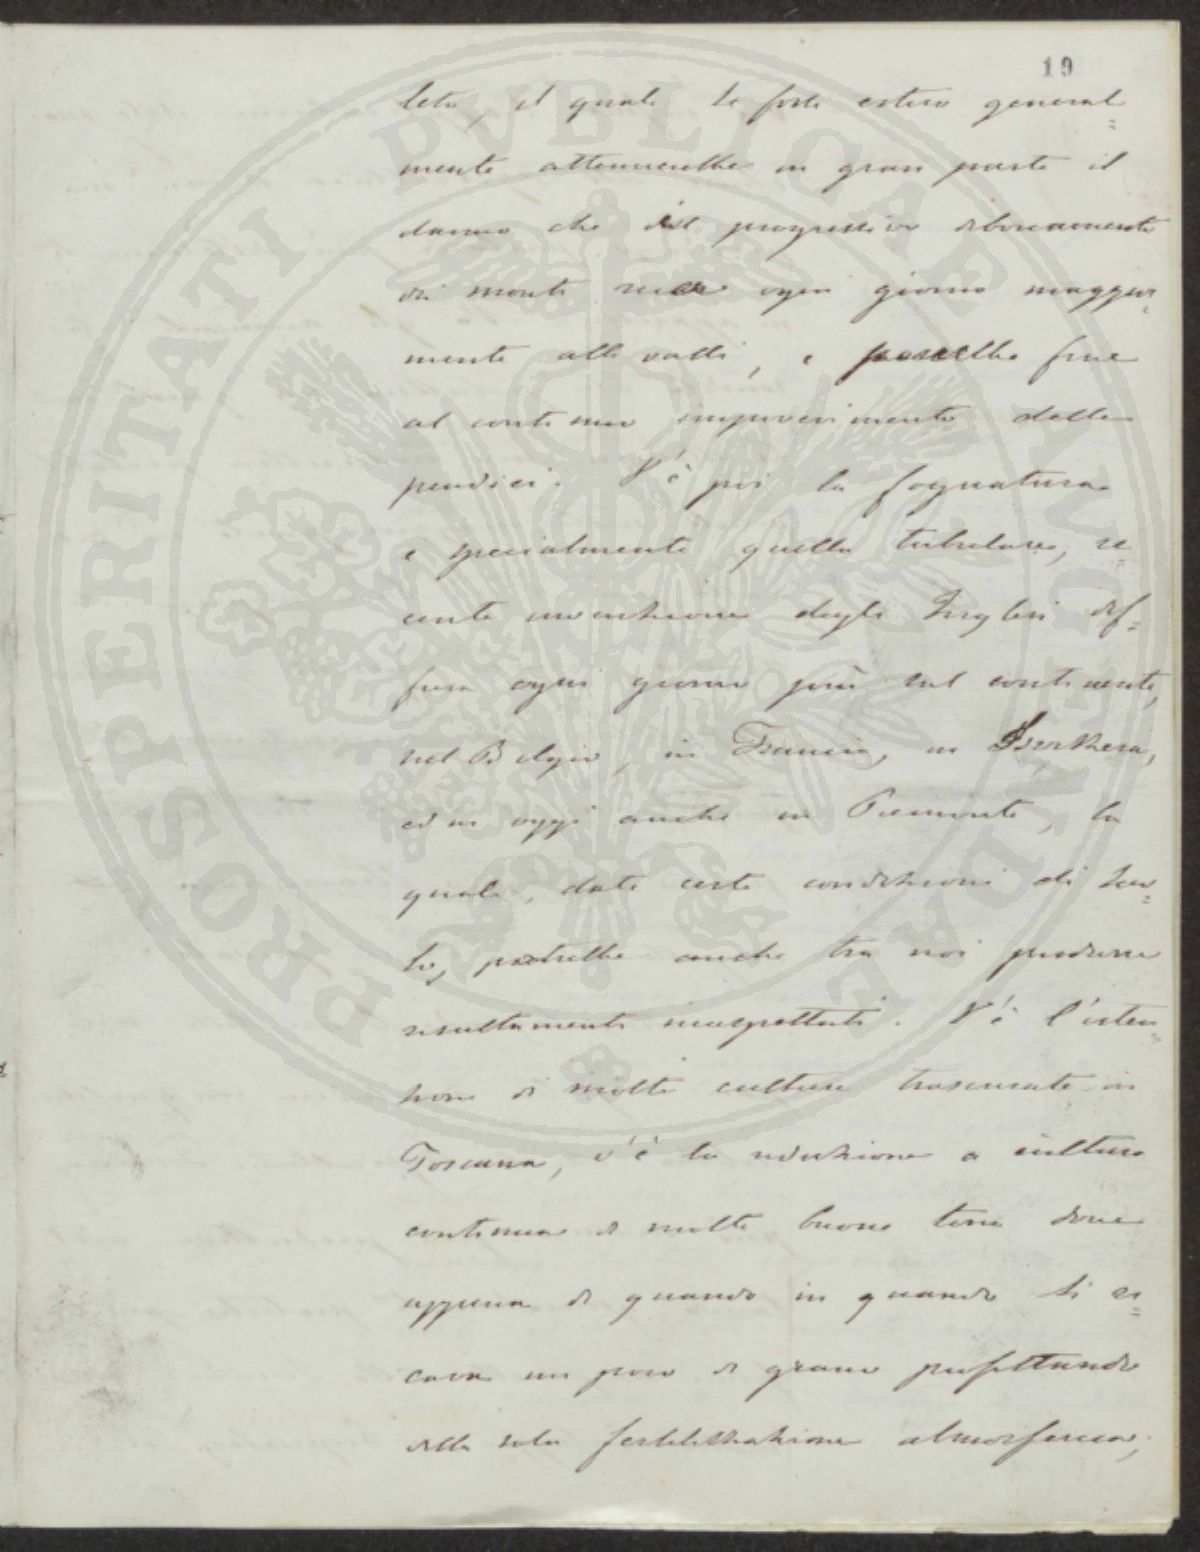 19
leta, il quale se fosse esteso general=
mente attenuerebbe in gran parte il
danno che il progressivo diboscamento
dei monti reca ogni giorno maggior=
mente alle valli, e porrebbe fine
al continuo impoverimento delle
pendici. V'è poi la fognatura
e specialmente quella tubulare, re=
cente invenzione degli Inglesi dif=
fusa ogni giorno più sul continente,
nel Belgio, in Francia, in Svizzera,
ed in oggi anche in Piemonte, la
quale, date certe condizioni di suo=
lo, potrebbe anche tra noi produrre
resultamenti inaspettati. V'è l'esten=
sione di molte culture trascurate in
Toscana, v'è la riduzione a cultura
continua di molte buone terre dove
appena di quando in quando si ri=
cava un poco di grano profittando
della sola fertilizzazione atmosferica;
PROSPERITATI PVBLICAE AVGENDAE